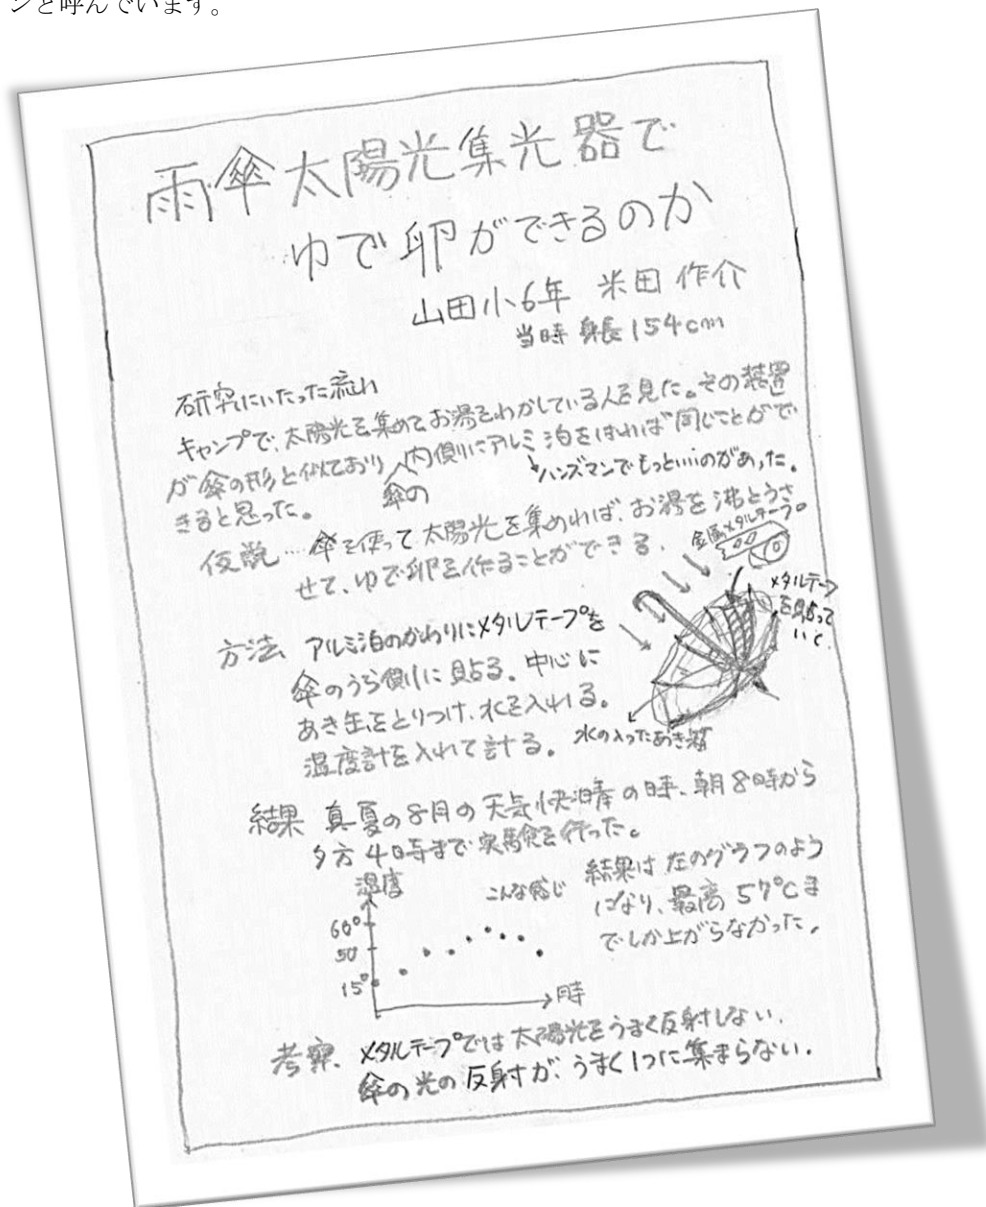 ンと呼んでいます。
雨傘太陽光集光器で
ゆで卵ができるのか
山田小6年 米田 作介
当時 身長154cm
研究にいたった流れ
キャンプで、太陽光を集めてお湯をわかしている人を見た。その装置
が傘の形と似ており 傘の内側にアルミ泊をはれば同じことがで
→ハンズマンでもっといいのがあった。
きると思った。
仮説…傘を使って太陽光を集めれば、お湯を沸とうさ
せて、ゆで卵を作ることができる。
金属メタルテープ。
メタルテープ
を貼って
いく
方法 アルミ泊のかわりにメタルテープを
傘のうら側に貼る。中心に
あき缶をとりつけ、水を入れる。
温度計を入れて計る。
水の入ったあき缶
結果 真夏の8月の天気快晴の時、朝8時から
夕方4時まで実験を行った。
温度
こんな感じ
60°
50
15°
時
結果は左のグラフのよう
になり、最高57℃ま
でしか上がらなかった。
考察、メタルテープでは太陽光をうまく反射しない、
傘の光の反射が、うまく1つに集まらない。